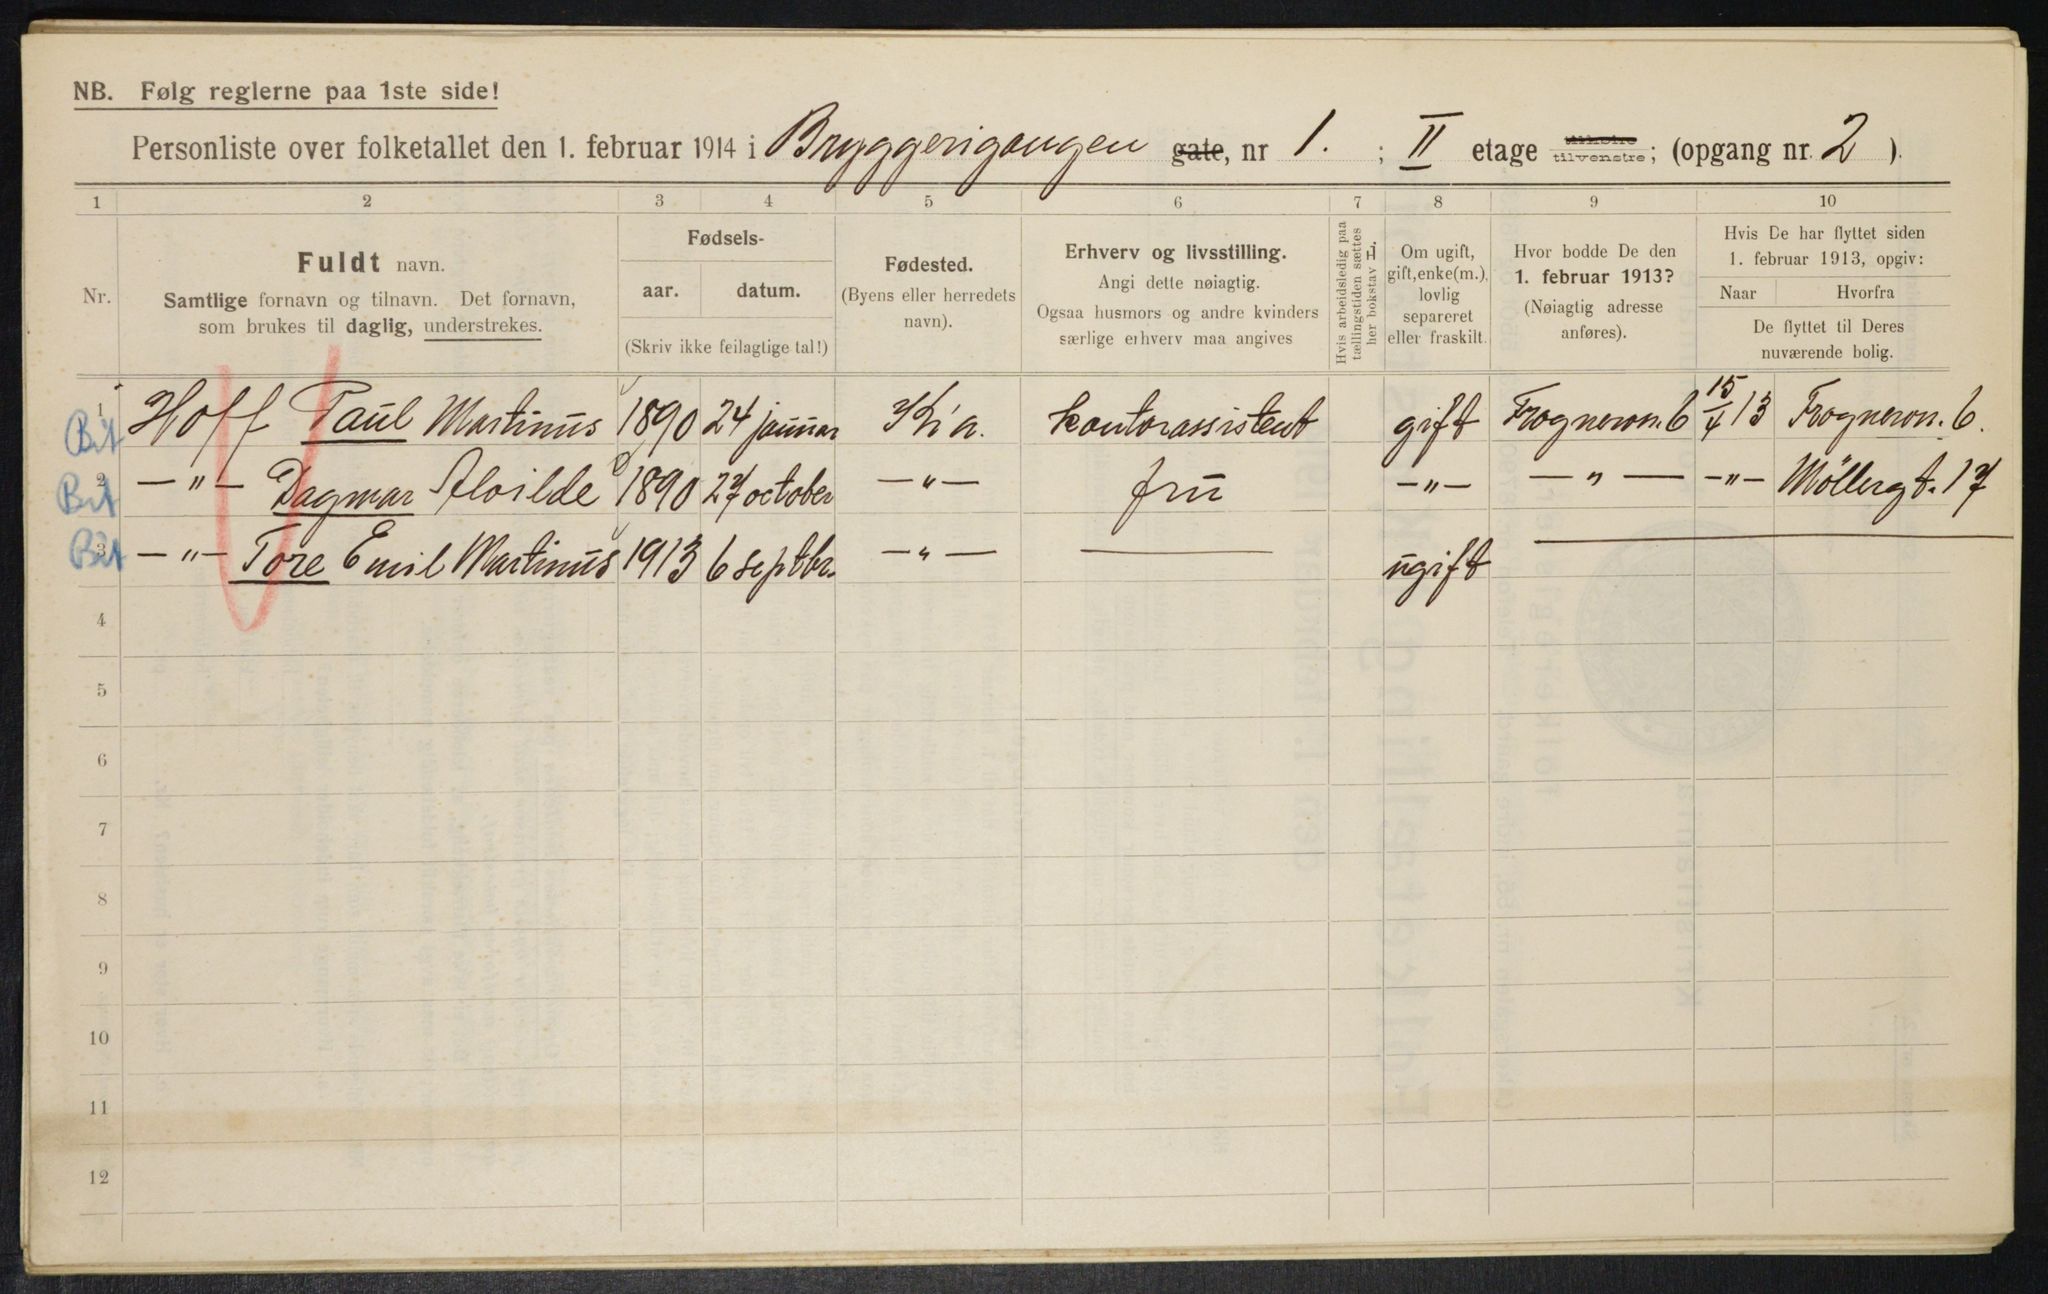 NB. Følg reglerne paa 1ste side!
Personliste over folketallet den 1. februar 1914 i Bryggerigangen gate, nr 1. ; II etage tilhøire tilvenstre; (opgang nr. 2 ).
1 2 3 4 5 6 7 8 9 10
Nr.
Fuldt navn.
Samtlige fornavn og tilnavn. Det fornavn,
som brukes til daglig, understrekes.
Fødsels-
aar. datum.
(Skriv ikke feilagtige tal!)
Fødested.
(Byens eller herredets
navn).
Erhverv og livsstilling.
Angi dette nøiagtig.
Ogsaa husmors og andre kvinders
særlige erhverv maa angives
Hvis arbeidsledig paa
tællingstiden sættes
her bokstav L.
Om ugift,
gift, enke(m.),
lovlig
separeret
eller fraskilt.
Hvor bodde De den
1. februar 1913?
(Nøiagtig adresse
anføres).
Hvis De har flyttet siden
1. februar 1913, opgiv:
Naar Hvorfra
De flyttet til Deres
nuværende bolig.
Bit 1 Hoff Paul Martinus 1890 24 januar Kr'a. kontorassistent gift Frogneron. 6 15/4 13 Frogneron. 6.
Bit 2 —"— Dagmar Alvilde 1890 27 october —"— frü —"— —"— —"— Möllergt. 17
Bit 3 —"— Tore Emil Martinus 1913 6 septbr. —"— — ugift
4
5
6
7
8
9
10
11
12